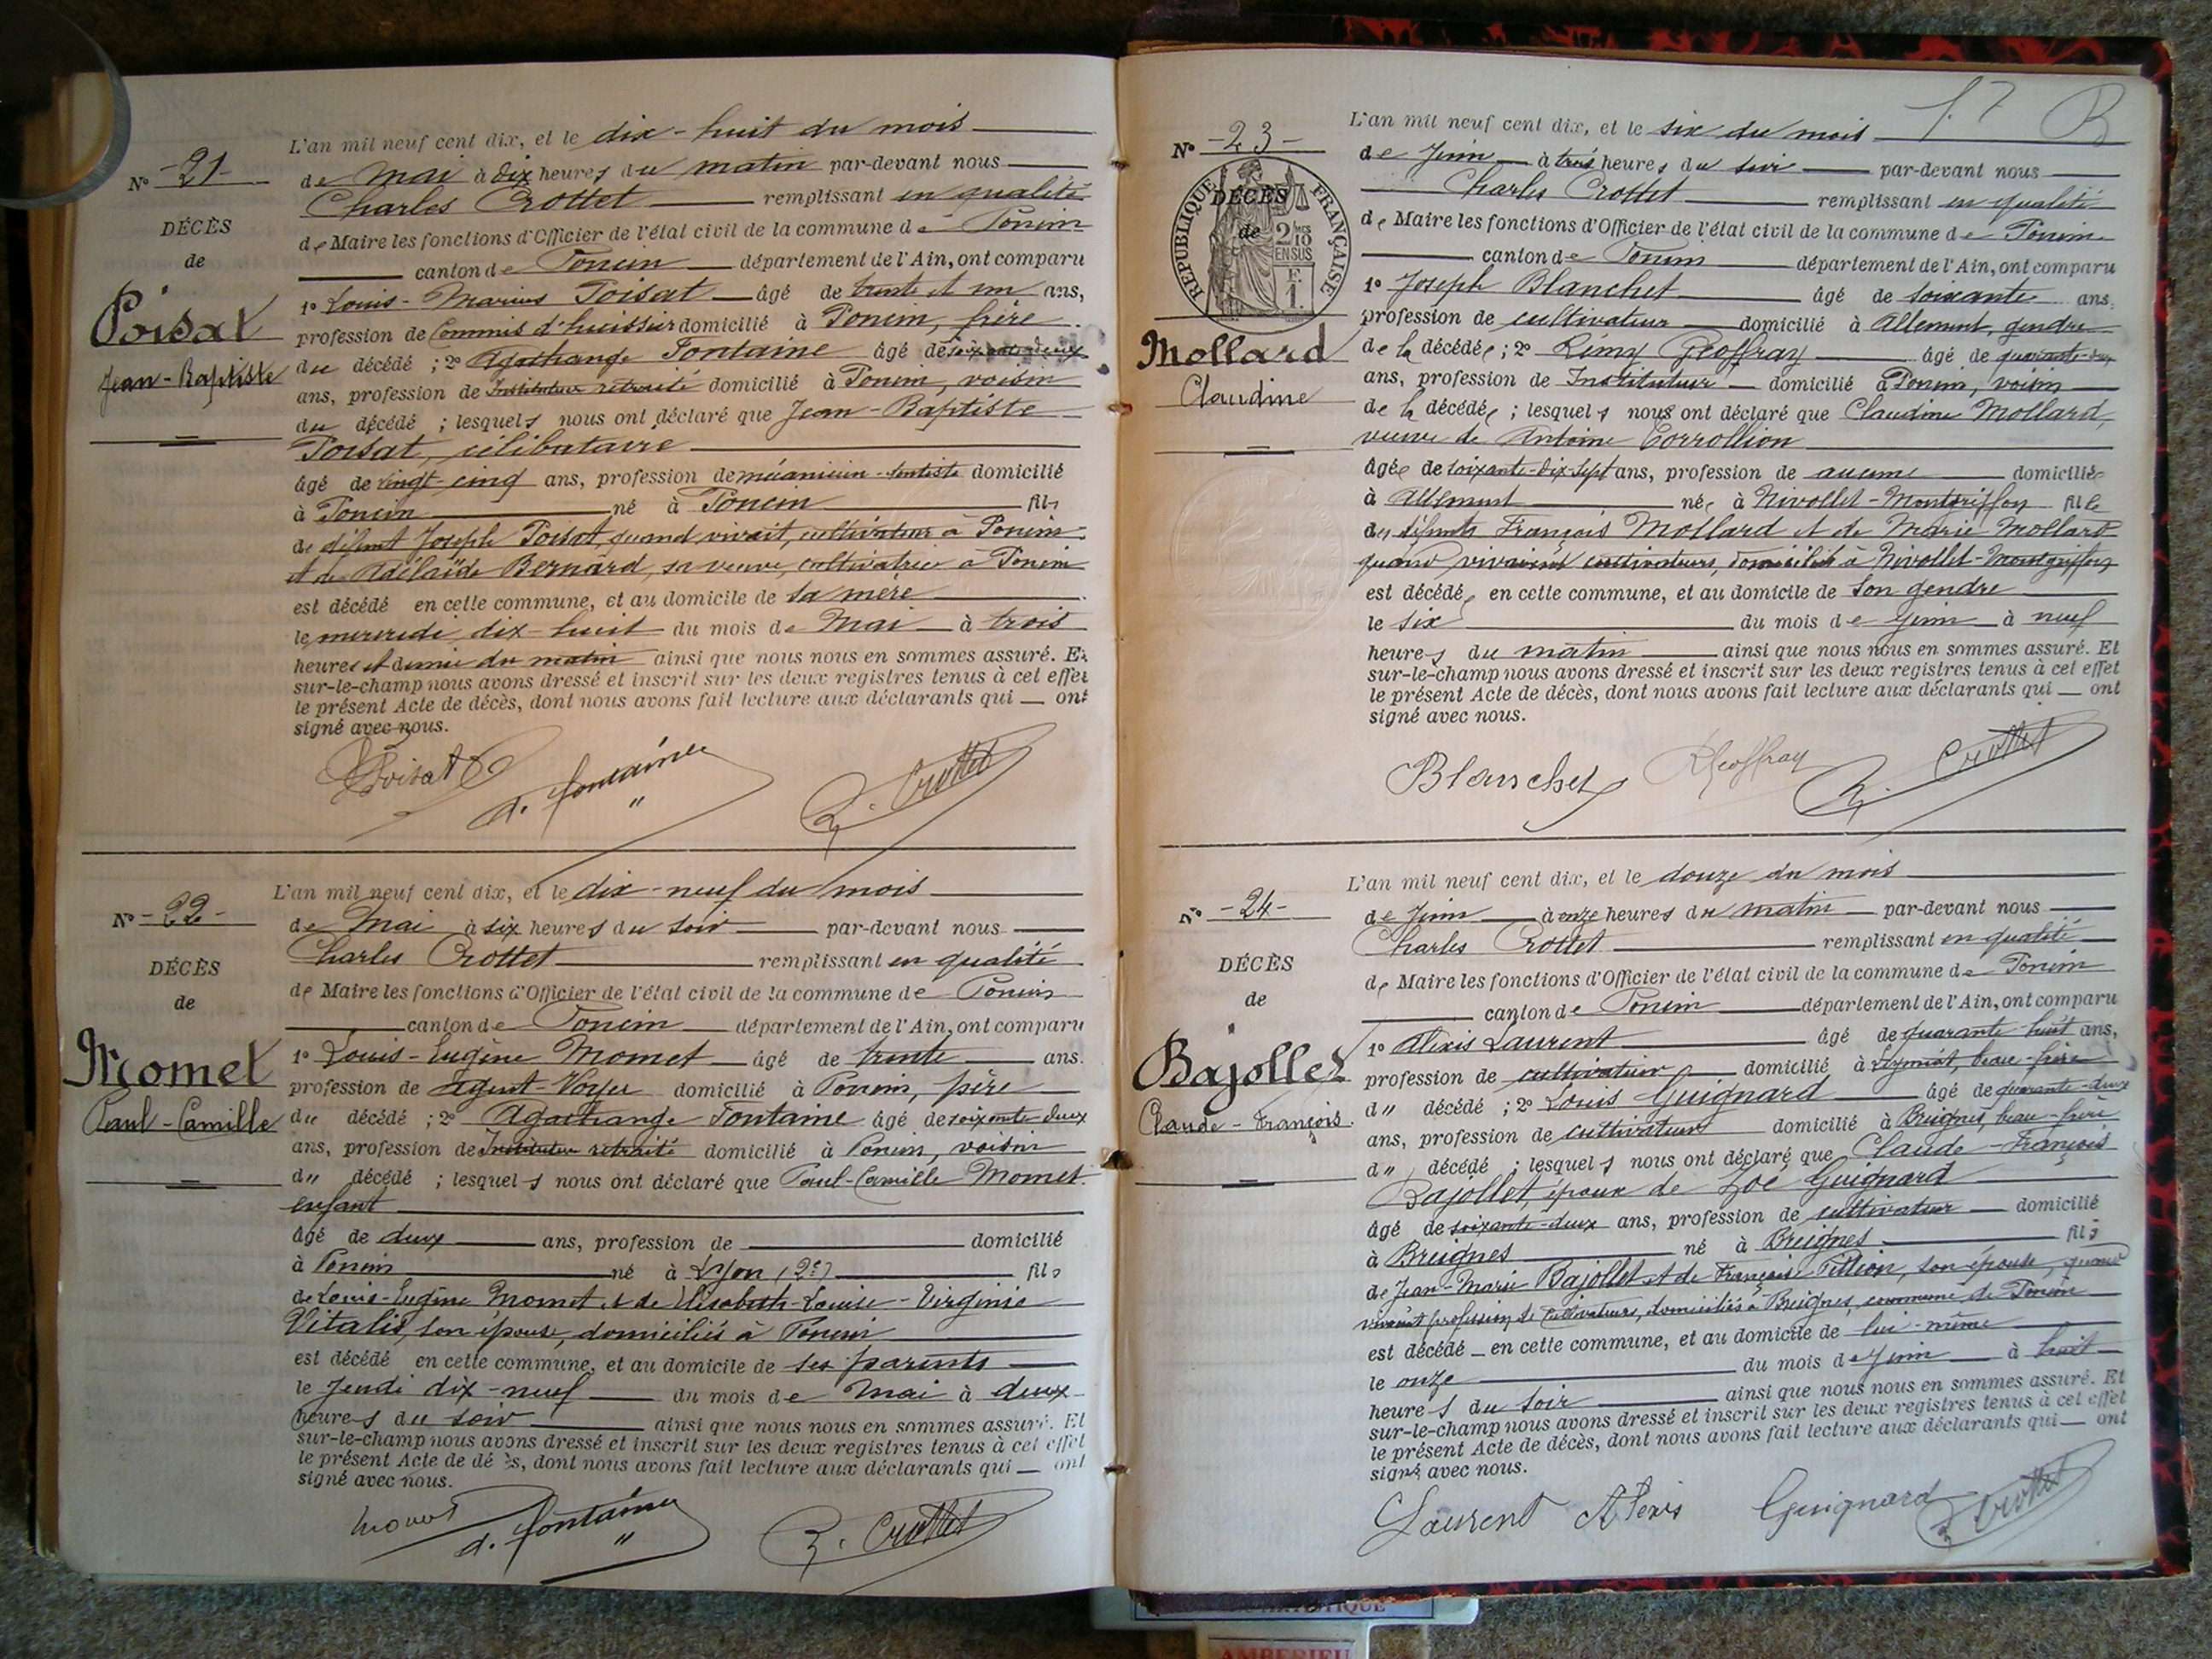 L'an mil neuf cent dix, et le dix-huit du mois
N° -21-
de Mai à dix heures du matin par-devant nous
Charles Crottet remplissant en qualité
DÉCÈS
de Maire les fonctions d'Officier de l'état civil de la commune de Poncin
de
canton de Poncin département de l'Ain, ont comparu
Poisat
1° Louis-Marius Poisat âgé de trente et un ans,
profession de Commis d'huissier domicilié à Poncin, frère
Jean-Baptiste
du décédé ; 2° Agathange Fontaine âgé de soixante deux
ans, profession de Instituteur retraité domicilié à Poncin, voisin
du décédé ; lesquels nous ont déclaré que Jean-Baptiste
Poisat, célibataire
âgé de vingt-cinq ans, profession de mécanicien-dentiste domicilié
à Poncin né à Poncin fils
de défunt Joseph Poisat, quand vivait, cultivateur à Poncin
et de Adélaïde Bernard, sa veuve, cultivatrice à Poncin
est décédé en cette commune, et au domicile de sa mère
le mercredi dix-huit du mois de Mai à trois
heures et demie du matin ainsi que nous nous en sommes assuré. Et
sur-le-champ nous avons dressé et inscrit sur les deux registres tenus à cet effet
le présent Acte de décès, dont nous avons fait lecture aux déclarants qui ont
signé avec nous.
Poisat A. Fontaine Crottet
L'an mil neuf cent dix, et le dix-neuf du mois
N° -22-
de Mai à six heures du soir par-devant nous
Charles Crottet remplissant en qualité
DÉCÈS
de Maire les fonctions d'Officier de l'état civil de la commune de Poncin
de
canton de Poncin département de l'Ain, ont comparu
Momet
1° Louis-Eugène Momet âgé de trente ans.
profession de Agent-Voyer domicilié à Poncin, père
Paul-Camille
du décédé ; 2° Agathange Fontaine âgé de soixante deux
ans, profession de Instituteur retraité domicilié à Poncin, voisin
du décédé ; lesquels nous ont déclaré que Paul-Camille Momet
enfant
âgé de deux ans, profession de domicilié
à Poncin né à Lyon (2e) fils
de Louis-Eugène Momet, & de Elisabeth-Louise-Virginie
Vitalis, son épouse, domiciliés à Poncin
est décédé en cette commune, et au domicile de ses parents
le Jeudi dix-neuf du mois de Mai à deux
heures du soir ainsi que nous nous en sommes assuré. Et
sur-le-champ nous avons dressé et inscrit sur les deux registres tenus à cet effet
le présent Acte de décès, dont nous avons fait lecture aux déclarants qui ont
signé avec nous.
Momet A. Fontaine Crottet
f. 7 B
L'an mil neuf cent dix, et le six du mois
N° -23-
de Juin à trois heures du soir par-devant nous
Charles Crottet remplissant en qualité
RÉPUBLIQUE FRANÇAISE
DÉCÈS
2/10 EN SUS
F. 1.
de Maire les fonctions d'Officier de l'état civil de la commune de Poncin
de
canton de Poncin département de l'Ain, ont comparu
1° Joseph Blanchet âgé de soixante ans.
profession de cultivateur domicilié à Allement, gendre
Mollard
de la décédée ; 2° Rémy Geoffray âgé de quarante-deux
Claudine
ans, profession de Instituteur domicilié à Poncin, voisin
de la décédée ; lesquels nous ont déclaré que Claudine Mollard,
veuve de Antoine Corrollion
âgée de soixante-dix-sept ans, profession de aucune domiciliée
à Allement née à Nivollet-Montgriffon fille
des défunts François Mollard et de Marie Mollard
quand vivaient cultivateurs, domiciliés à Nivollet-Montgriffon
est décédée en cette commune, et au domicile de son gendre
le six du mois de Juin à neuf
heures du matin ainsi que nous nous en sommes assuré. Et
sur-le-champ nous avons dressé et inscrit sur les deux registres tenus à cet effet
le présent Acte de décès, dont nous avons fait lecture aux déclarants qui ont
signé avec nous.
Blanchet RGeoffray Crottet
L'an mil neuf cent dix, et le douze du mois
N° -24-
de Juin à onze heures du matin par-devant nous
Charles Crottet remplissant en qualité
DÉCÈS
de Maire les fonctions d'Officier de l'état civil de la commune de Poncin
de
canton de Poncin département de l'Ain, ont comparu
1° Alexis Laurent âgé de quarante-huit ans,
Bajollet
profession de cultivateur domicilié à beau-frère
Claude-François
du décédé ; 2° Louis Guignard âgé de quarante-deux
ans, profession de cultivateur domicilié à Breignes, beau-frère
du décédé ; lesquels nous ont déclaré que Claude-François
Bajollet, époux de Zoé Guignard
âgé de soixante-deux ans, profession de cultivateur domicilié
à Breignes né à Breignes fils
de Jean-Marie Bajollet et de Françoise Pillion, son épouse, quand
vivaient profession de cultivateurs, domiciliés à Breignes, commune de Poncin
est décédé en cette commune, et au domicile de lui-même
le onze du mois de Juin à huit
heures du soir ainsi que nous nous en sommes assuré. Et
sur-le-champ nous avons dressé et inscrit sur les deux registres tenus à cet effet
le présent Acte de décès, dont nous avons fait lecture aux déclarants qui ont
signé avec nous.
Laurent Alexis Guignard Crottet
AMBERIEU